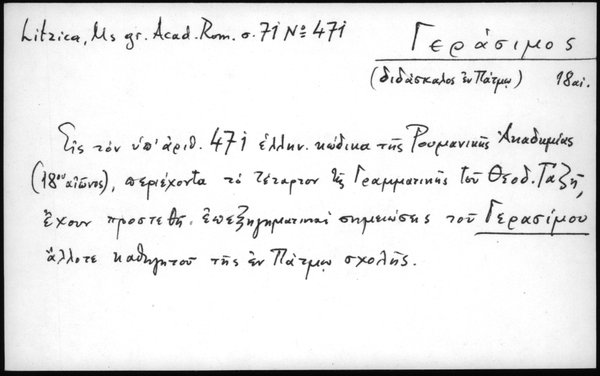 Litzica, Ms gr. Acad. Rom. σ. 71 Nº 471
Γεράσιμος
(διδάσκαλος ἐν Πάτμῳ) 18 αἰ.
Εἰς τὸν ὑπ' ἀριθ. 471 ἑλλην. κώδικα τῆς Ρουμανικῆς Ἀκαδημίας
(18ου αἰῶνος), περιέχοντα τὸ τέταρτον τῆς Γραμματικῆς τοῦ Θεοδ. Γαζῆ,
ἔχουν προστεθῆ. ἐπεξηγηματικαὶ σημειώσεις τοῦ Γερασίμου
ἄλλοτε καθηγητοῦ τῆς ἐν Πάτμῳ σχολῆς.